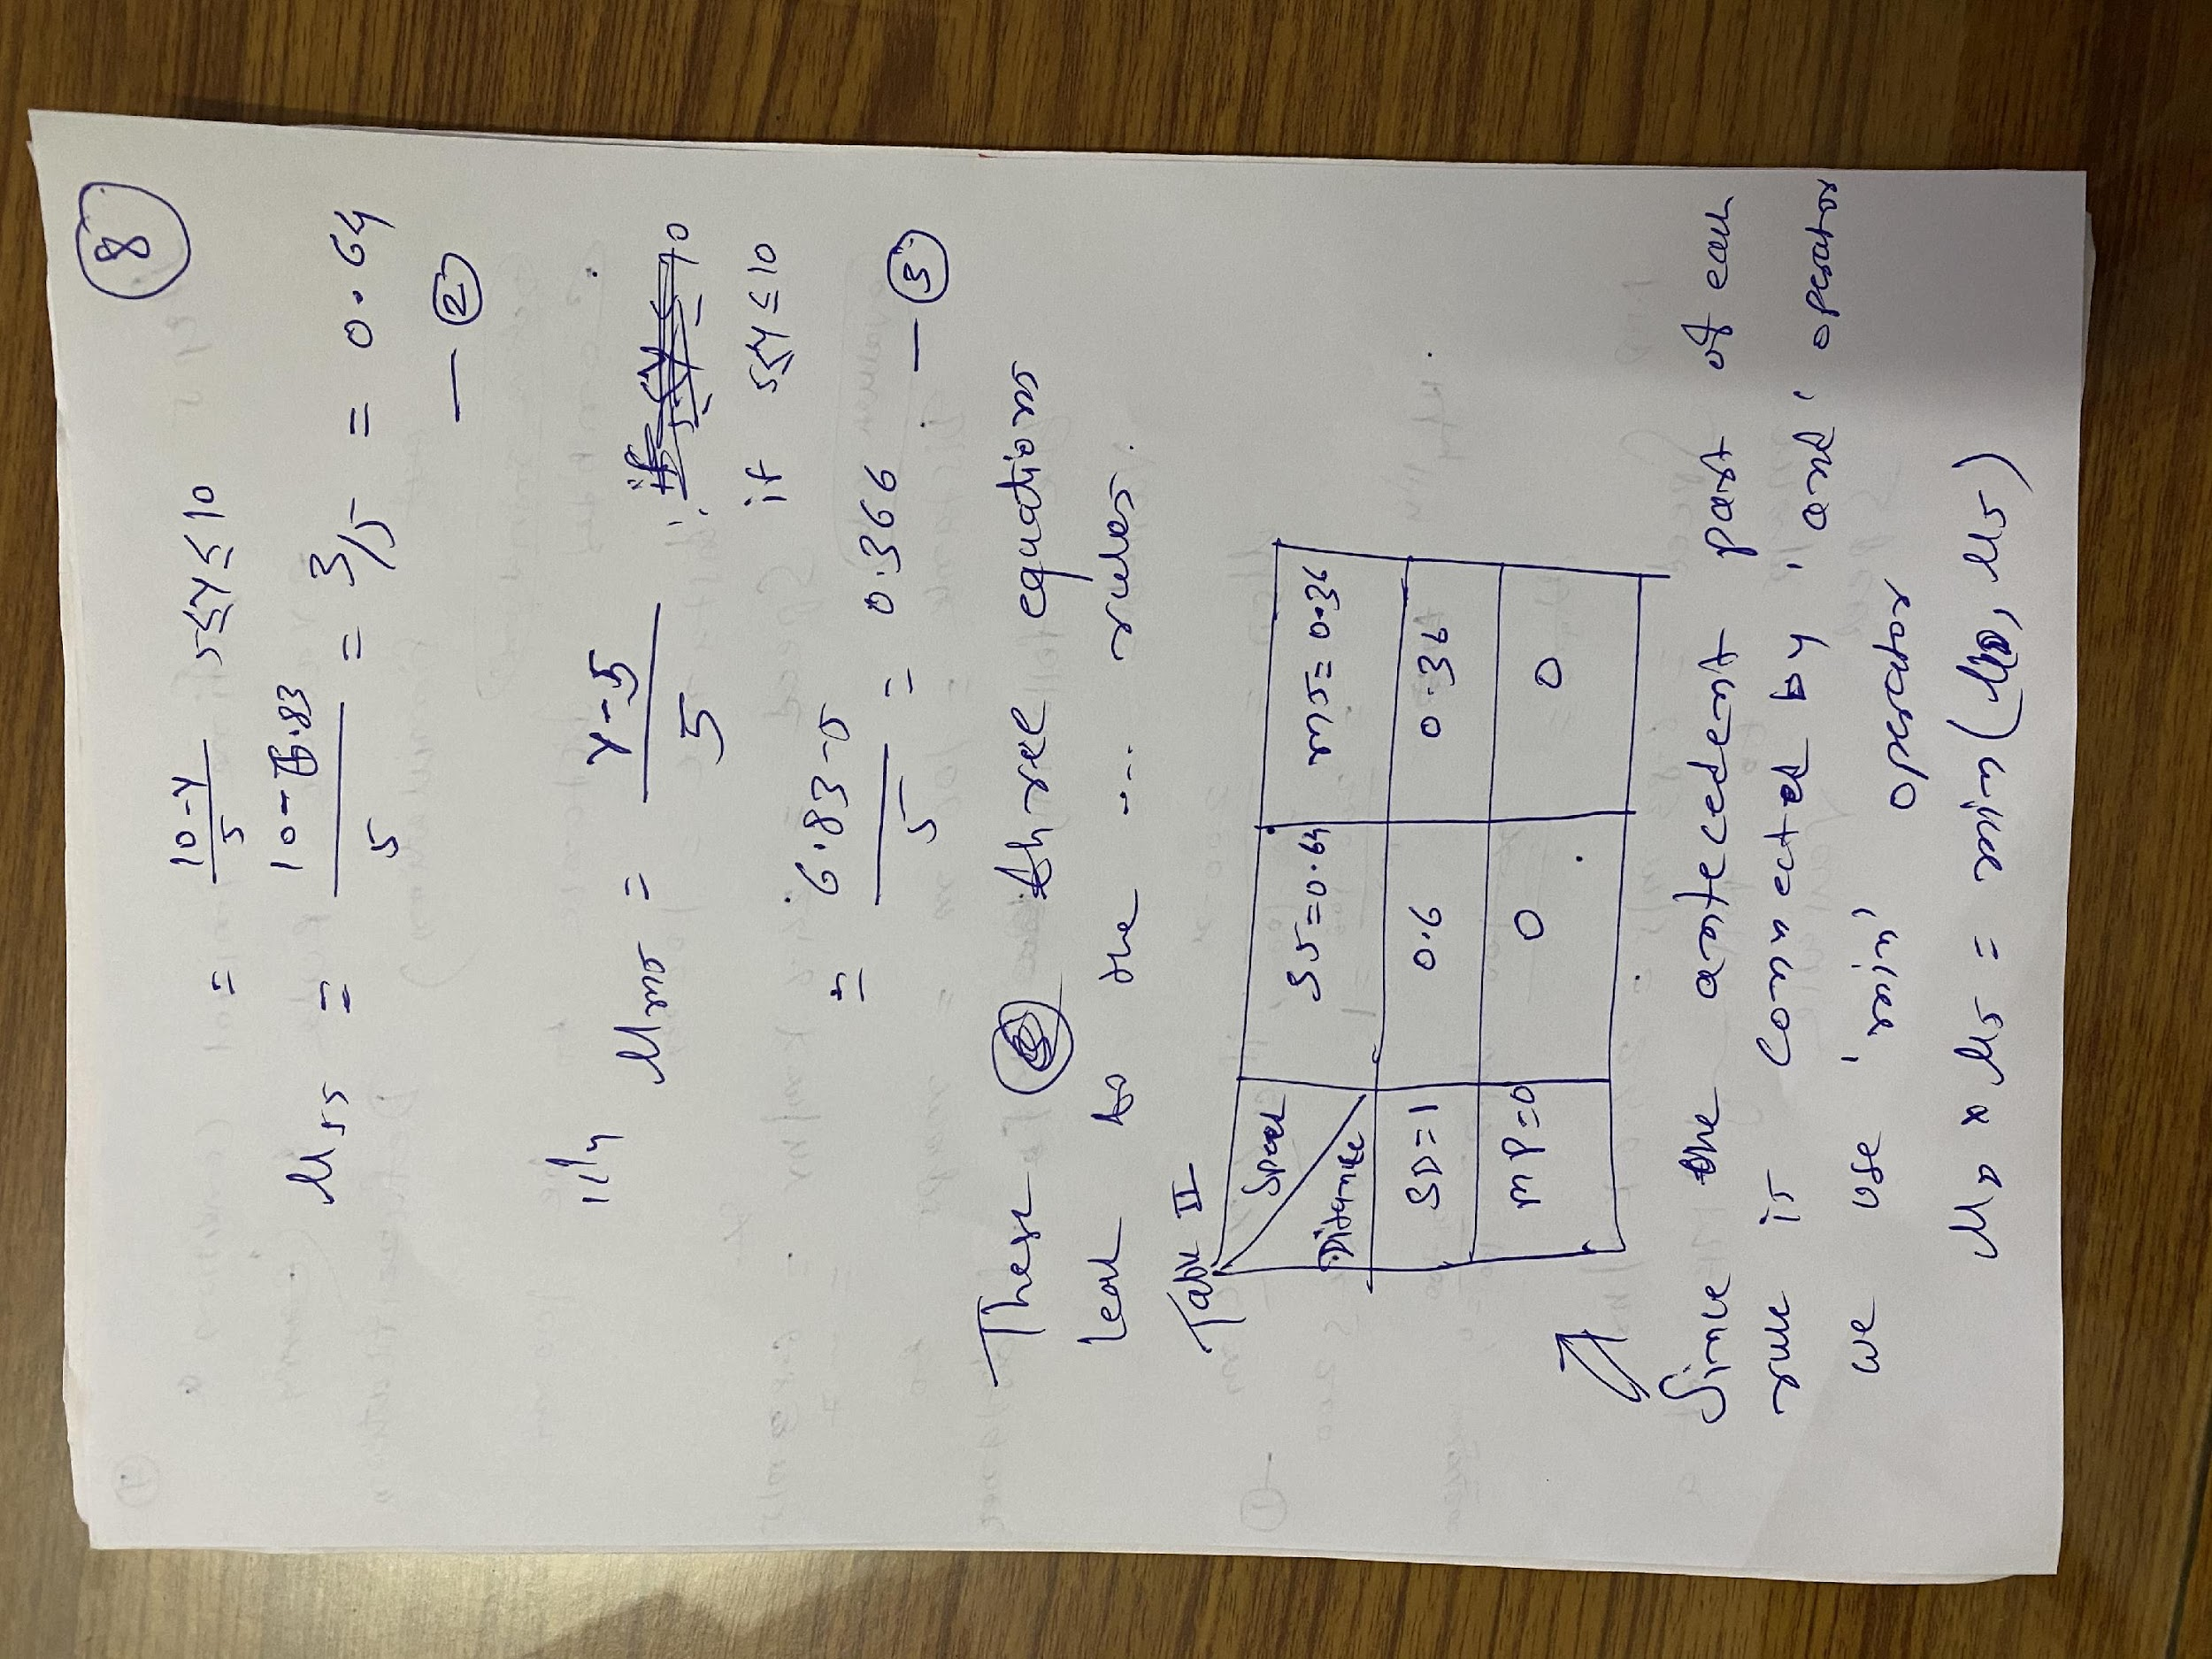 8
= 10-y / 5 5≤y≤10
μss = 10-6.83 / 5 = 3/5 = 0.64
— 2
illy μms = y-5 / 5
if 5≤y≤10
= 6.83-5 / 5 = 0.366 — 3
These three equations
lead to the .... rules.
Table II
Speed Distance SS=0.64 ms=0.36
SD=1 0.6 0.36
mD=0 0 0
Since the antecedent part of each
rule is connected by 'and' operator
we use 'min' operator
μD × μs = min(μD, μs)